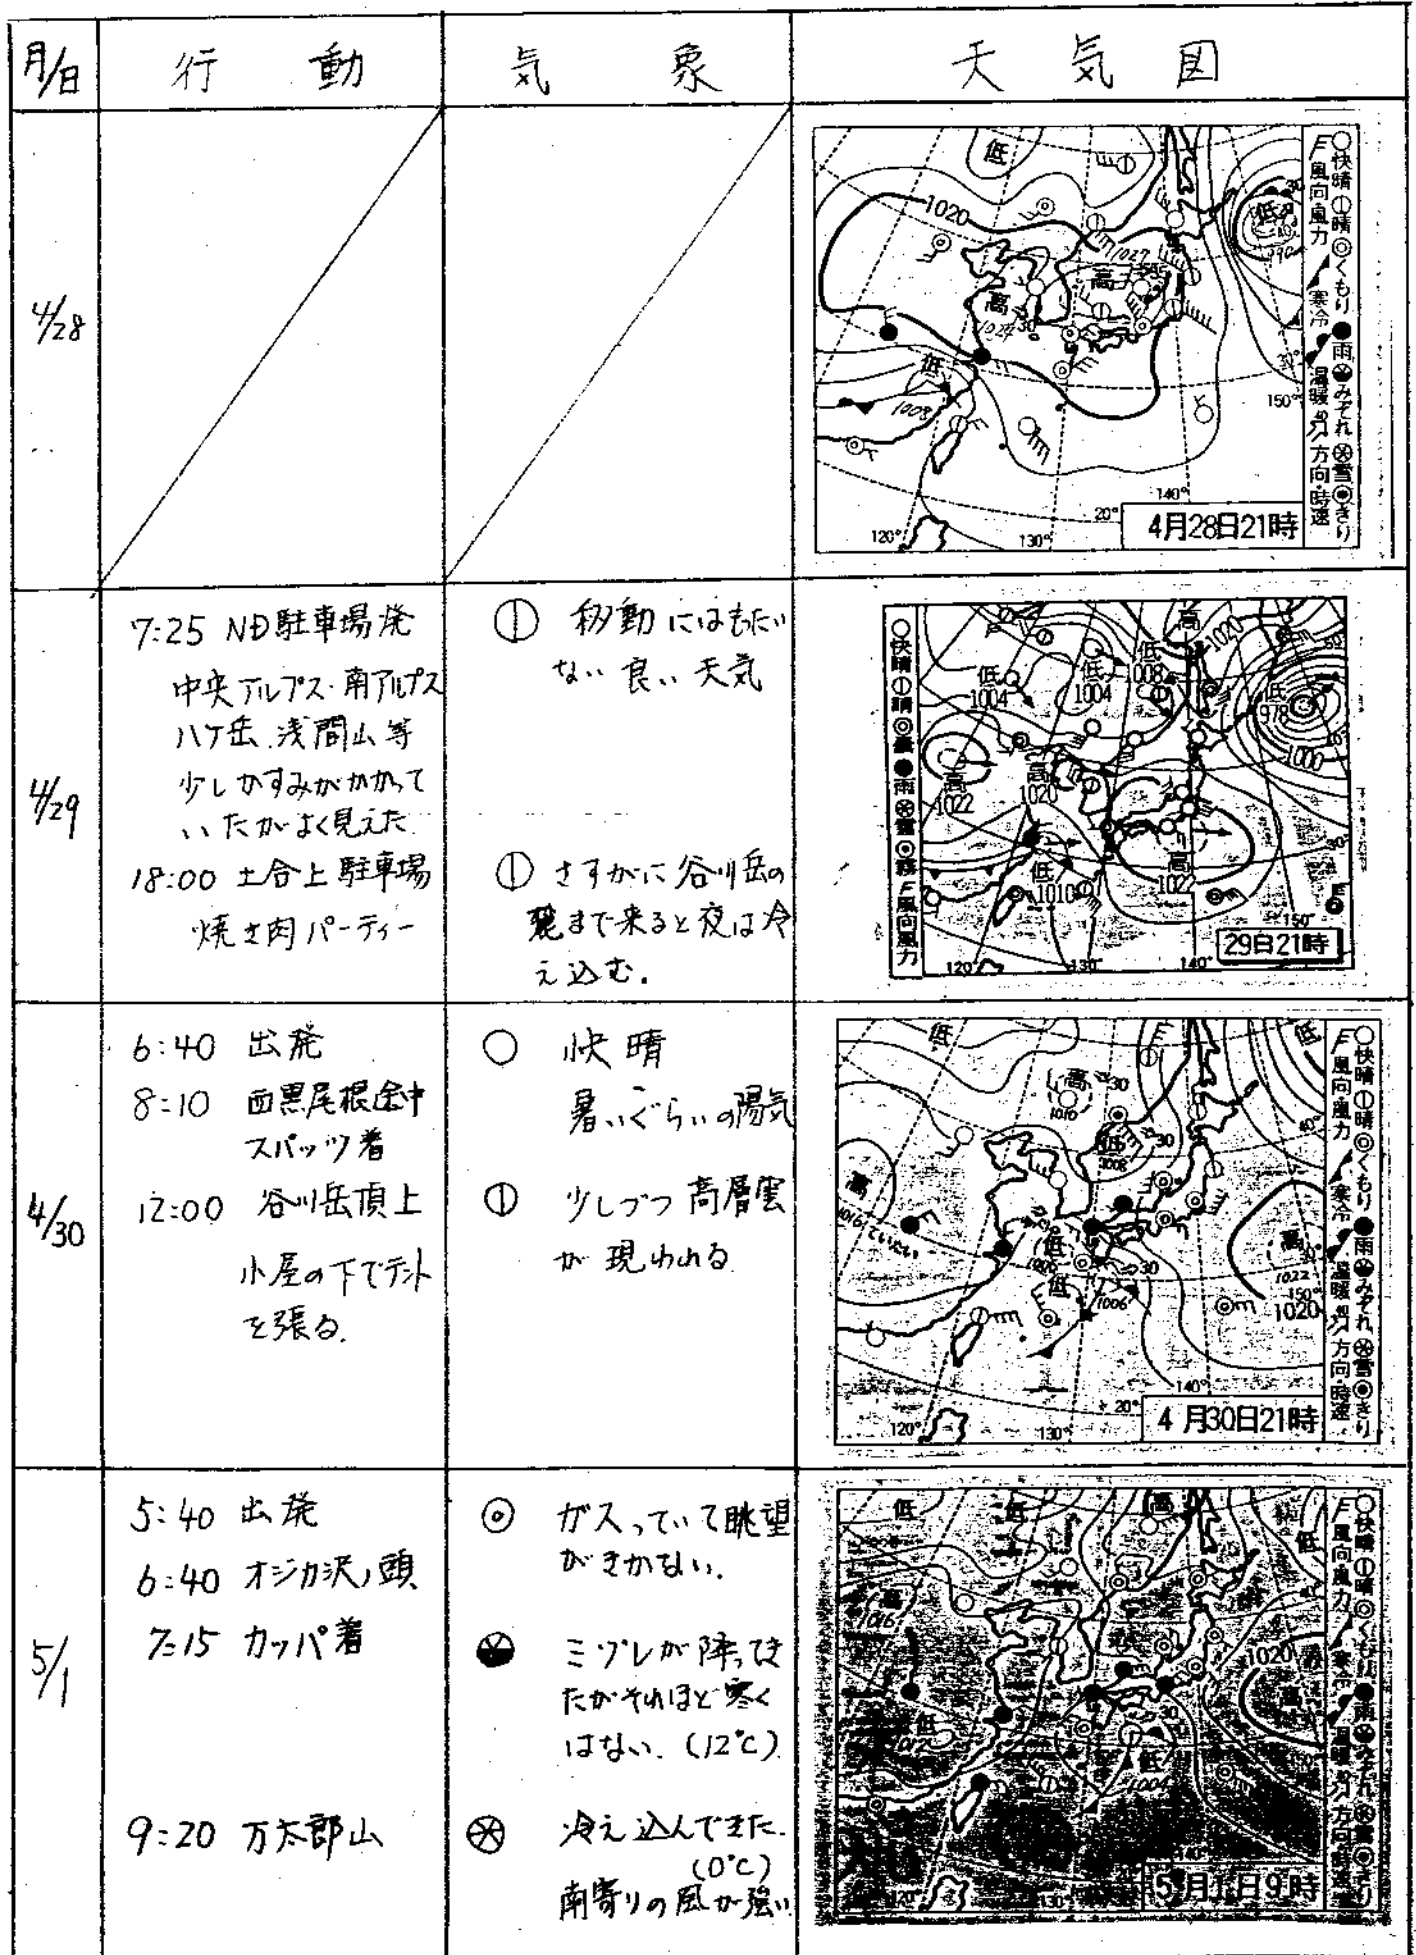 月/日 行動 気象 天気図
4/28
1020
低
高
高
1027
低
低
1008
150°
140°
20°
120°
130°
4月28日21時
○快晴①晴◎くもり●雨 みぞれ 雪 きり
風向・風力 寒冷 温暖 方向・時速
4/29
7:25 ND駐車場発
中央アルプス・南アルプス
八ケ岳、浅間山等
少しかすみがかかって
いたがよく見えた
18:00 土合上駐車場
焼き肉パーティー
① 移動にはもったい
ない良い天気
① さすがに谷川岳の
麓まで来ると夜は冷
え込む.
高
1020
低
1008
低
1004
低
1004
低
978
1000
高
1022
高
1020
低
1010
高
1022
30°
150°
120°
130°
140°
29日21時
4/30
6:40 出発
8:10 西黒尾根途中
スパッツ着
12:00 谷川岳頂上
小屋の下でテント
を張る.
○ 快晴
暑いぐらいの陽気
① 少しづつ高層雲
が現われる
低
低
高
1010
低
1008
高
1016
ていたい
低
低
1006
高
1022
1020
150°
140°
20°
120°
130°
4月30日21時
○快晴①晴◎くもり●雨 みぞれ 雪 きり
風向・風力 寒冷 温暖 方向・時速
5/1
5:40 出発
6:40 オジカ沢ノ頭
7:15 カッパ着
9:20 万太郎山
◎ ガスっていて眺望
がきかない.
ミゾレが降ってき
たがそれほど寒く
はない. (12℃)
冷え込んできた.
(0℃)
南寄りの風が強い
低
低
高
低
高
1016
1020
高
低
1012
低
1004
140°
120°
130°
5月1日9時
○快晴①晴◎くもり●雨 みぞれ 雪 きり
風向・風力 寒冷 温暖 方向・時速